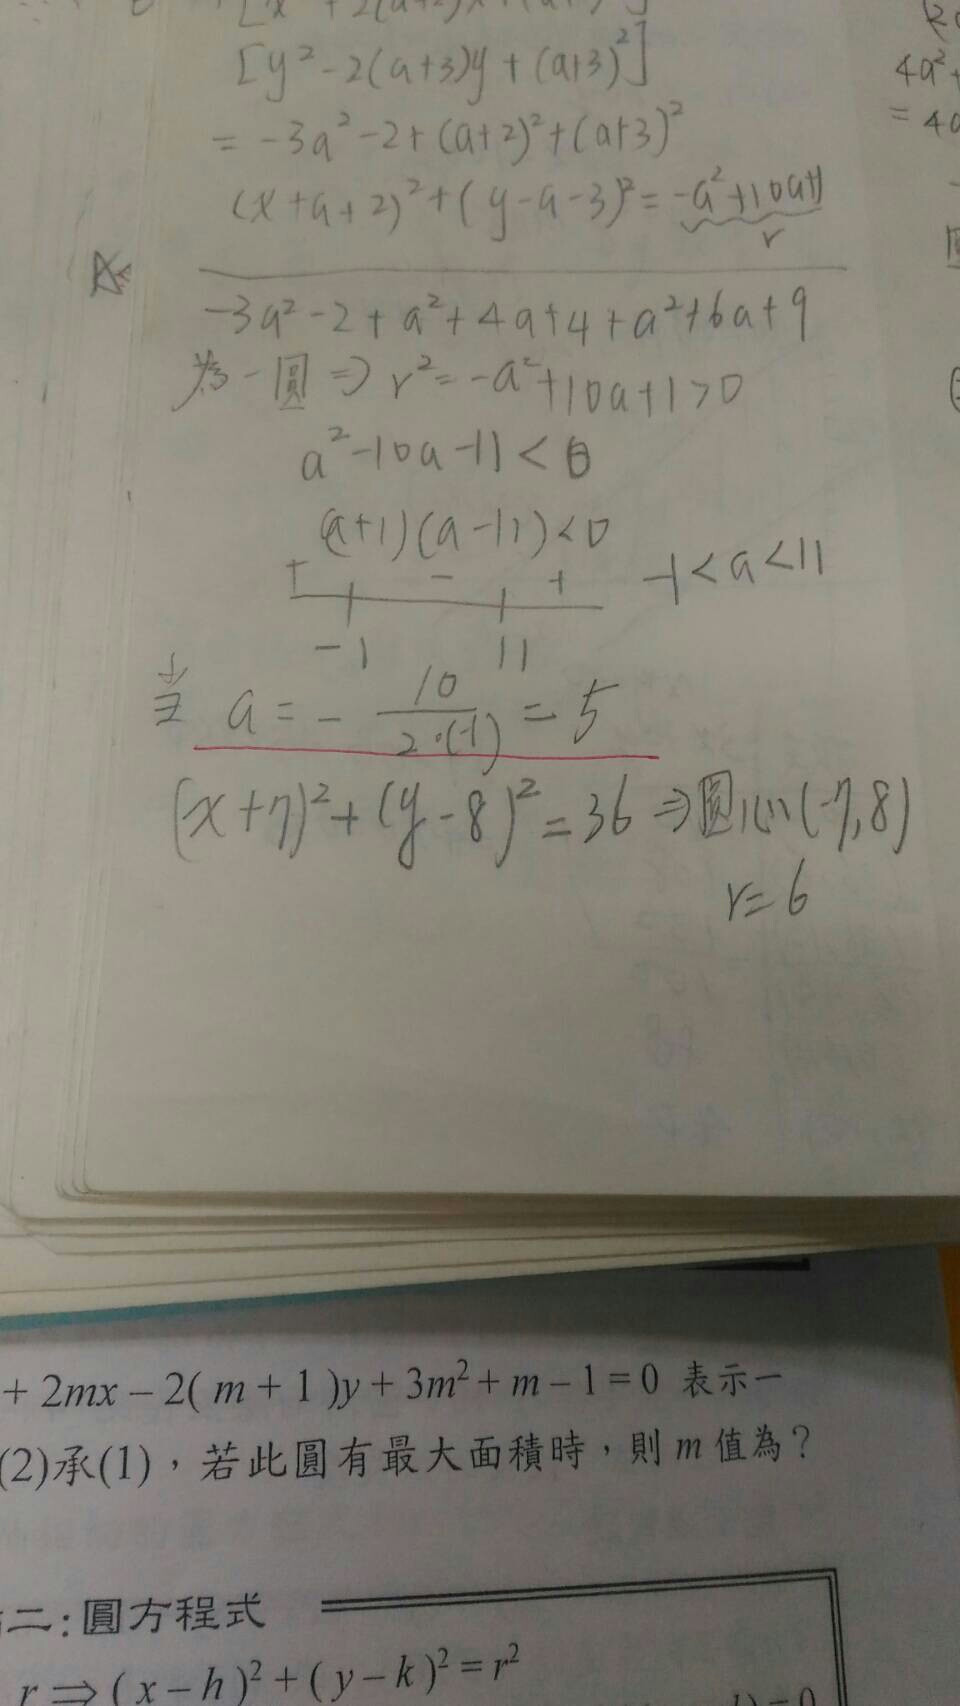 [y² - 2(a+3)y + (a+3)²]
= -3a² - 2 + (a+2)² + (a+3)²
(x+a+2)² + (y-a-3)² = -a²+10a+11
r
-3a² - 2 + a² + 4a + 4 + a² + 6a + 9
為一圓 ⇒ r² = -a²+10a+11>0
a² - 10a - 11 < 0
(a+1)(a-11)<0
+ - +
-1<a<11
-1 11
a = - 10/(2·(-1)) = 5
(x+7)² + (y-8)² = 36 ⇒ 圓心(-7,8)
r=6
4a²+
= 4a
+ 2mx – 2( m + 1 )y + 3m² + m – 1 = 0 表示一
(2)承(1)，若此圓有最大面積時，則 m 值為？
二：圓方程式
r ⇒ (x – h)² + (y – k)² = r²
) = 0